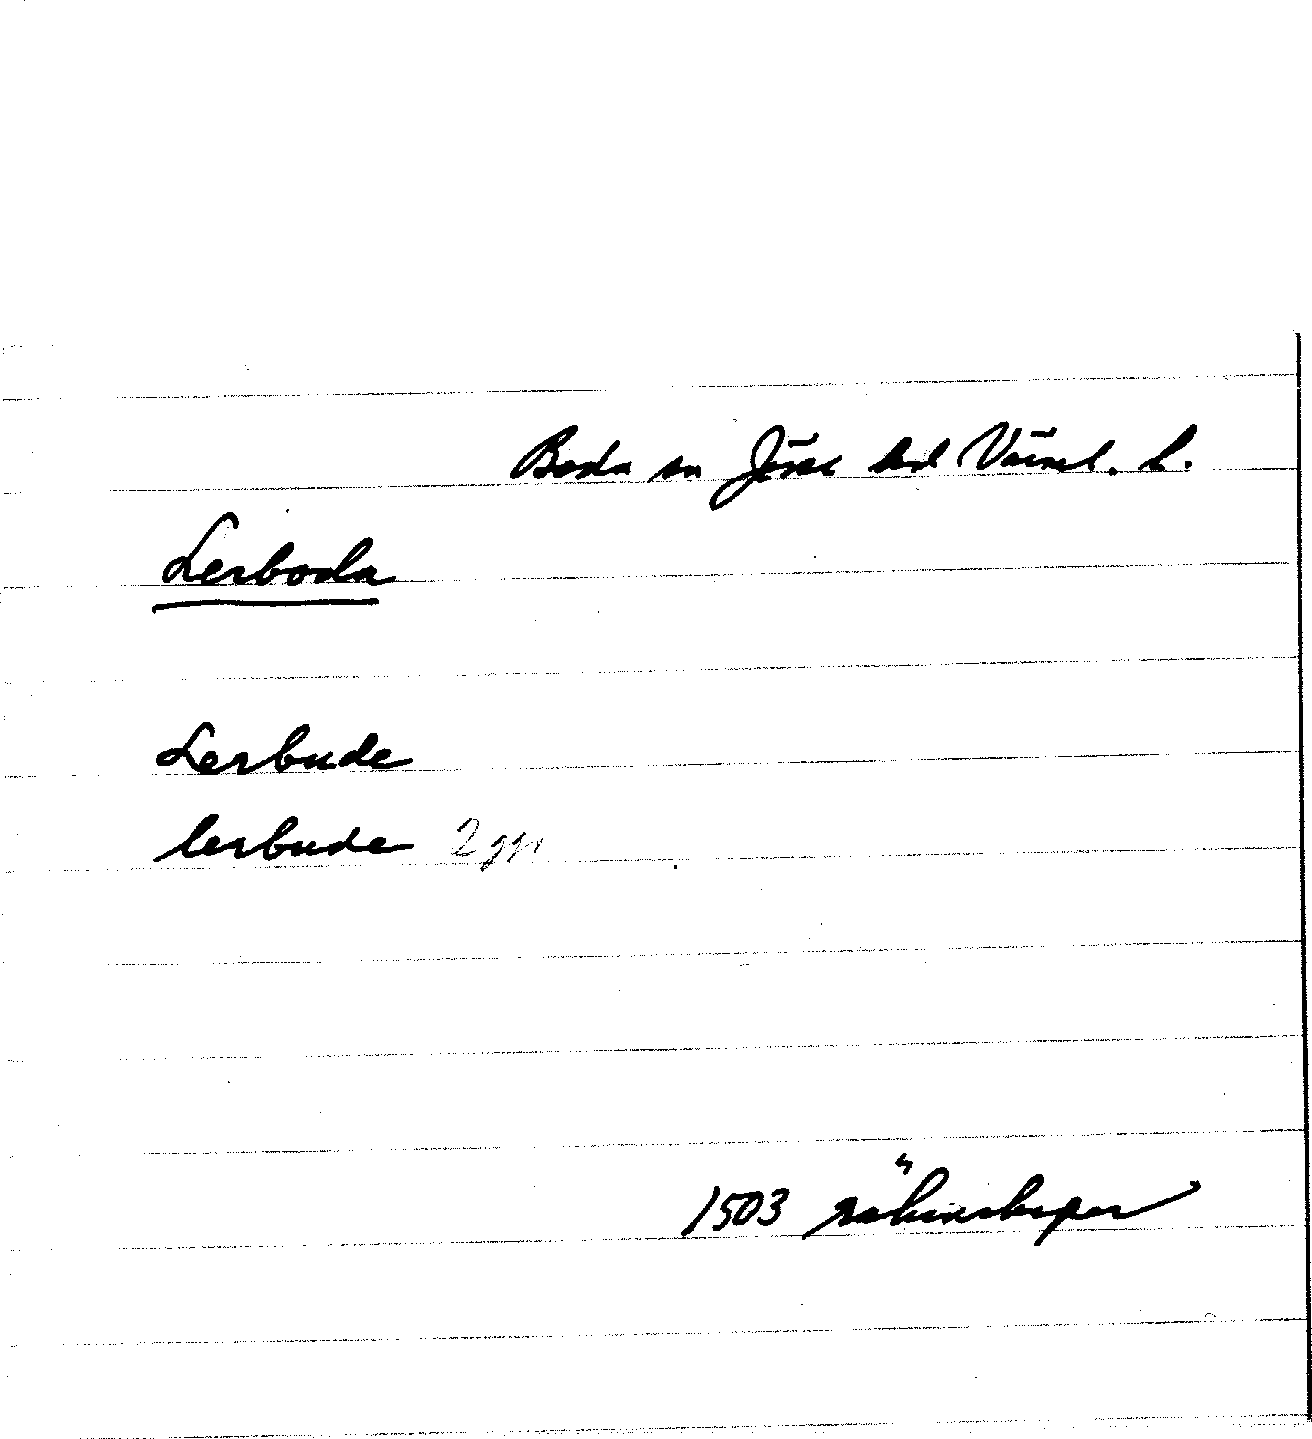 Boda sn Jösse hd Värml. l.
Lerboda
Lerbude
lerbude 2 ggr
1503 räkenskaper